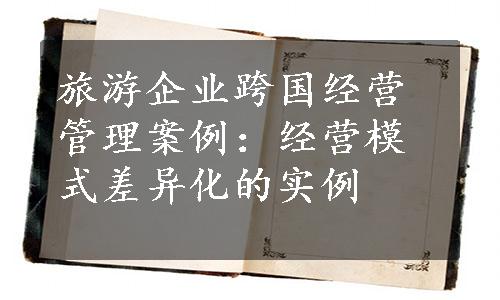 旅游企业跨国经营
管理案例：经营模
式差异化的实例